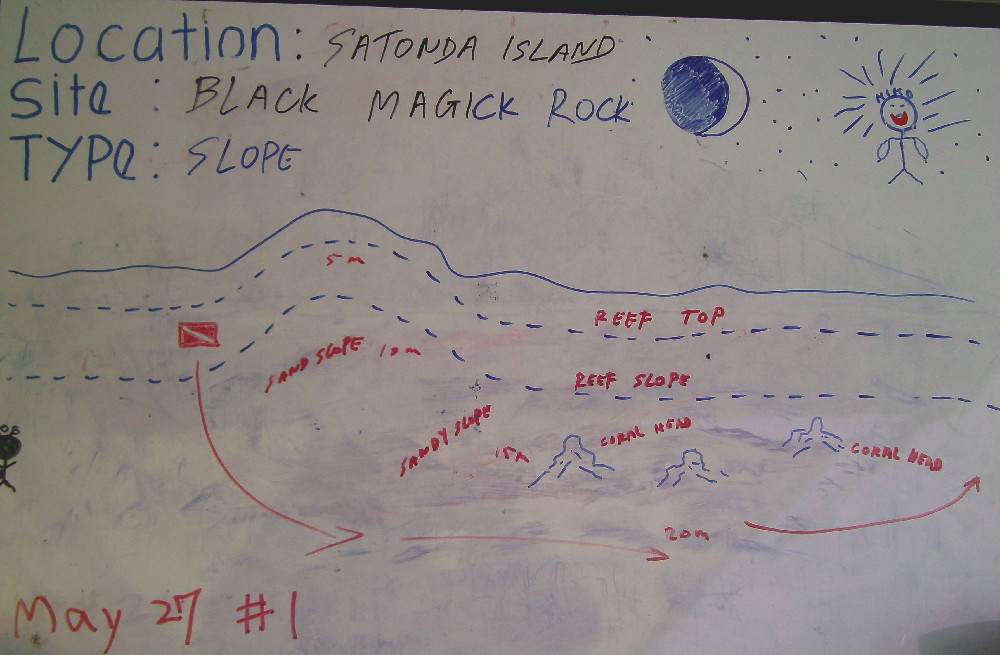 Location: SATONDA ISLAND
Site : BLACK MAGICK ROCK
TYPE: SLOPE
NIKO
5m
REEF TOP
SAND SLOPE 10m
REEF SLOPE
SANDY SLOPE
15m
CORAL HEAD
CORAL HEAD
20m
May 27 #1